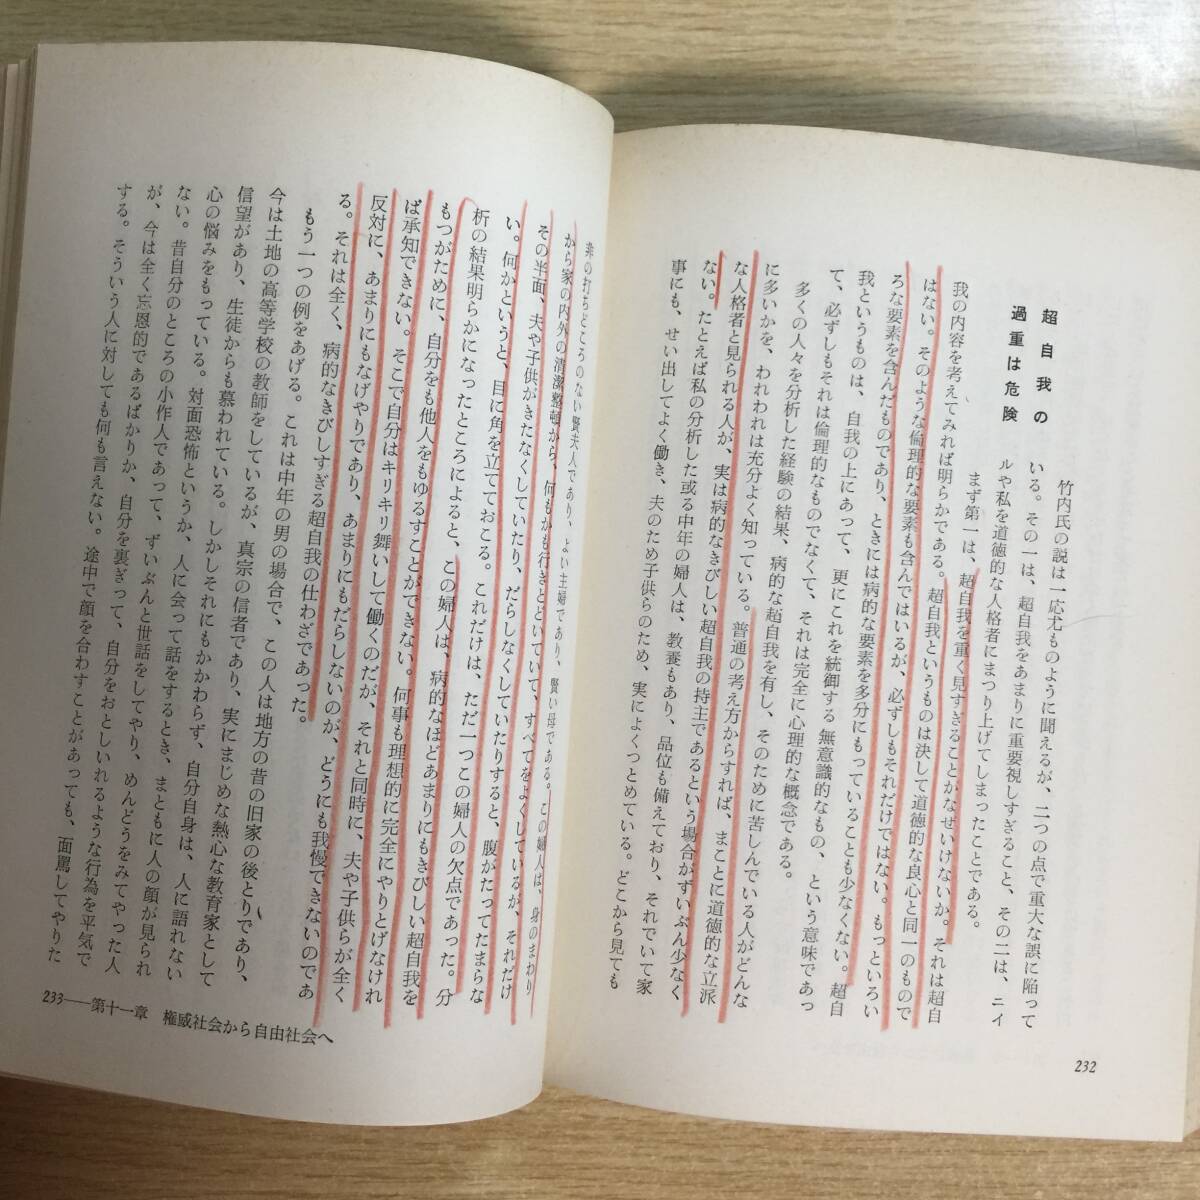 超自我の
過重は危険
竹内氏の説は一応尤ものように聞えるが、二つの点で重大な誤に陥って
いる。その一は、超自我をあまりに重要視しすぎること、その二は、ニイ
ルや私を道徳的な人格者にまつり上げてしまったことである。
まず第一は、超自我を重く見すぎることがなぜいけないか。それは超自
我の内容を考えてみれば明らかである。超自我というものは決して道徳的な良心と同一のもので
はない。そのような倫理的な要素も含んではいるが、必ずしもそれだけではない。もっといろい
ろな要素を含んだものであり、ときには病的な要素を多分にもっていることも少なくない。超自
我というものは、自我の上にあって、更にこれを統御する無意識的なもの、という意味であっ
て、必ずしもそれは倫理的なものでなくて、それは完全に心理的な概念である。
多くの人々を分析した経験の結果、病的な超自我を有し、そのために苦しんでいる人がどんな
に多いかを、われわれは充分よく知っている。普通の考え方からすれば、まことに道徳的な立派
な人格者と見られる人が、実は病的なきびしい超自我の持主であるという場合がずいぶん少なく
ない。たとえば私の分析した或る中年の婦人は、教養もあり、品位も備えており、それでいて家
事にも、せい出してよく働き、夫のため子供らのため、実によくつとめている。どこから見ても
232
非の打ちどころのない賢夫人であり、よい主婦であり、賢い母である。この婦人は、身のまわり
から家の内外の清潔整頓から、何もかも行きとどいていて、すべてをよくしているが、それだけ
その半面、夫や子供がきたなくしていたり、だらしなくしていたりすると、腹がたってたまらな
い。何かというと、目に角を立てておこる。これだけは、ただ一つこの婦人の欠点であった。分
析の結果明らかになったところによると、この婦人は、病的なほどあまりにもきびしい超自我を
もつがために、自分をも他人をもゆるすことができない。何事も理想的に完全にやりとげなけれ
ば承知できない。そこで自分はキリキリ舞いして働くのだが、それと同時に、夫や子供らが全く
反対に、あまりにもなげやりであり、あまりにもだらしないのが、どうにも我慢できないのであ
る。それは全く、病的なきびしすぎる超自我の仕わざであった。
もう一つの例をあげる。これは中年の男の場合で、この人は地方の昔の旧家の後とりであり、
今は土地の高等学校の教師をしているが、真宗の信者であり、実にまじめな熱心な教育家として
信望があり、生徒からも慕われている。しかしそれにもかかわらず、自分自身は、人に語れない
心の悩みをもっている。対面恐怖というか、人に会って話をするとき、まともに人の顔が見られ
ない。昔自分のところの小作人であって、ずいぶんと世話をしてやり、めんどうをみてやった人
が、今は全く忘恩的であるばかりか、自分を裏ぎって、自分をおとしいれるような行為を平気で
する。そういう人に対しても何も言えない。途中で顔を合わすことがあっても、面罵してやりた
233——第十一章 権威社会から自由社会へ